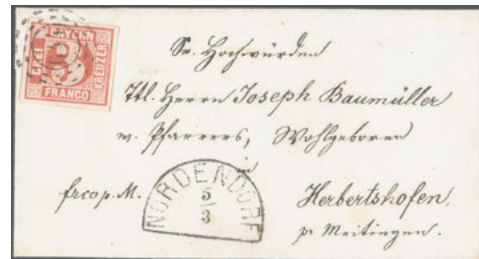 BAYERN
DREI
KREUZER
FRANCO
Sr. Hochwürden
Ttl. Herrn Joseph Baumüller
w. Pfarrers, Wohlgeboren
in
frco p. M.
NORDENDORF
5
3
Herbertshofen,
pr Meitingen.